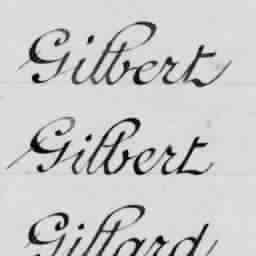 Gilbert
Gilbert
Gillard